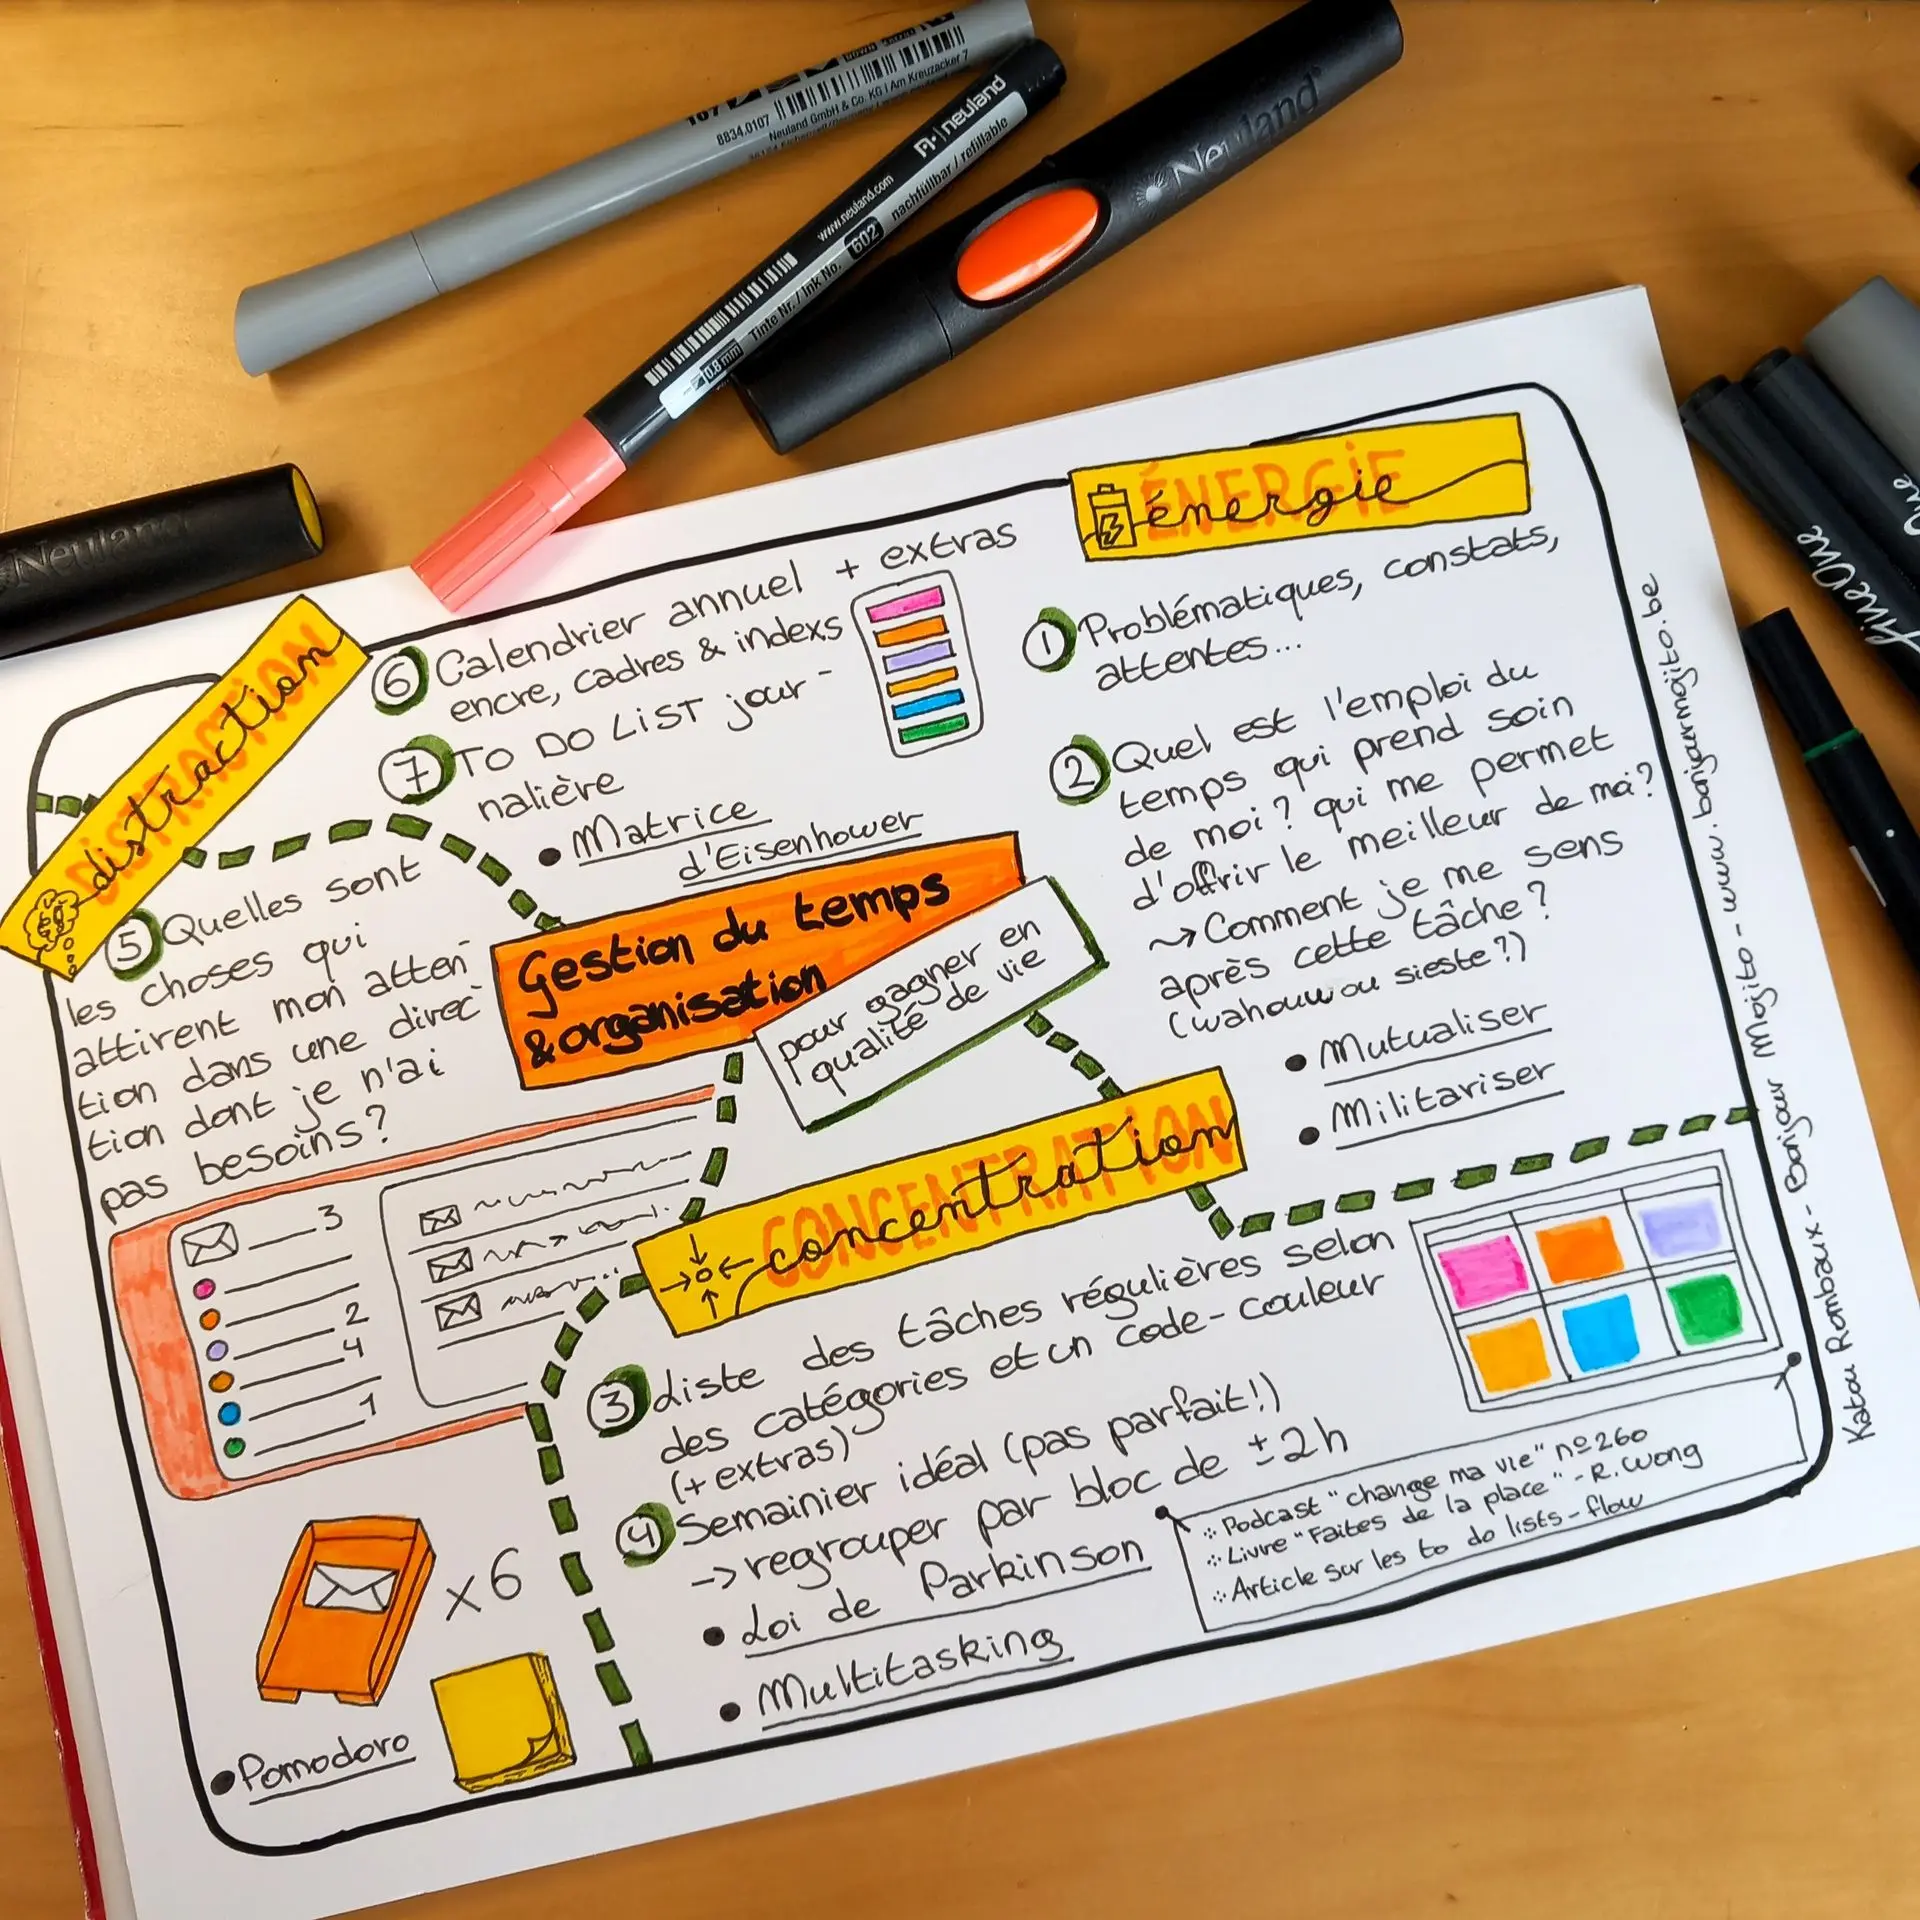 8834.0107
Neuland GmbH & Co. KG | Am Kreuzacker 7
neuland
www.neuland.com
nachfüllbar / refillable
0.8 mm
Tinte Nr. / Ink No. 602
Neuland
Neuland
fineOne
One
ÉNERGIE
énergie
① Problématiques, constats,
attentes...
② Quel est l'emploi du
temps qui prend soin
de moi? qui me permet
d'offrir le meilleur de moi?
→ Comment je me sens
après cette tâche?
(wahouw ou sieste?)
• Mutualiser
• Militariser
Gestion du temps
& organisation
pour gagner en
qualité de vie
CONCENTRATION
concentration
③ Liste des tâches régulières selon
des catégories et un code-couleur
(+ extras)
④ Semainier idéal (pas parfait!)
→ regrouper par bloc de ± 2h
• Loi de Parkinson
• Multitasking
Podcast "change ma vie" nº 260
Livre "Faites de la place" - R. Wong
Article sur les to do lists - flow
DISTRACTION
distraction
⑤ Quelles sont
les choses qui
attirent mon atten-
tion dans une direc-
tion dont je n'ai
pas besoins?
3
2
4
1
x 6
• Pomodoro
⑥ Calendrier annuel + extras
encre, cadres & indexs
⑦ TO DO LIST jour-
nalière
• Matrice
d'Eisenhower
Katou Rombaux - Bonjour Mojito - www.bonjourmojito.be